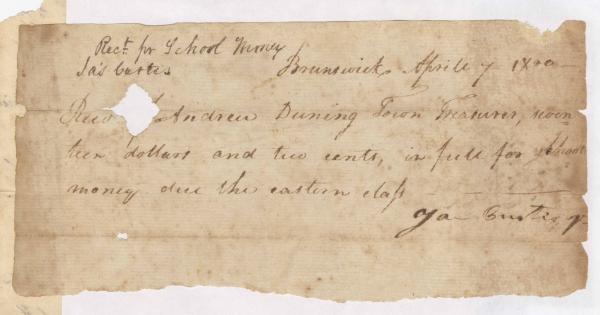 Rect. for School Money
Jas Curtis
Brunswick Aprile 7 18
Recd Andrew Duning Town Treasurer, seven
teen dollars and two cents, in full for school
money due the eastern class
Ja Curtis